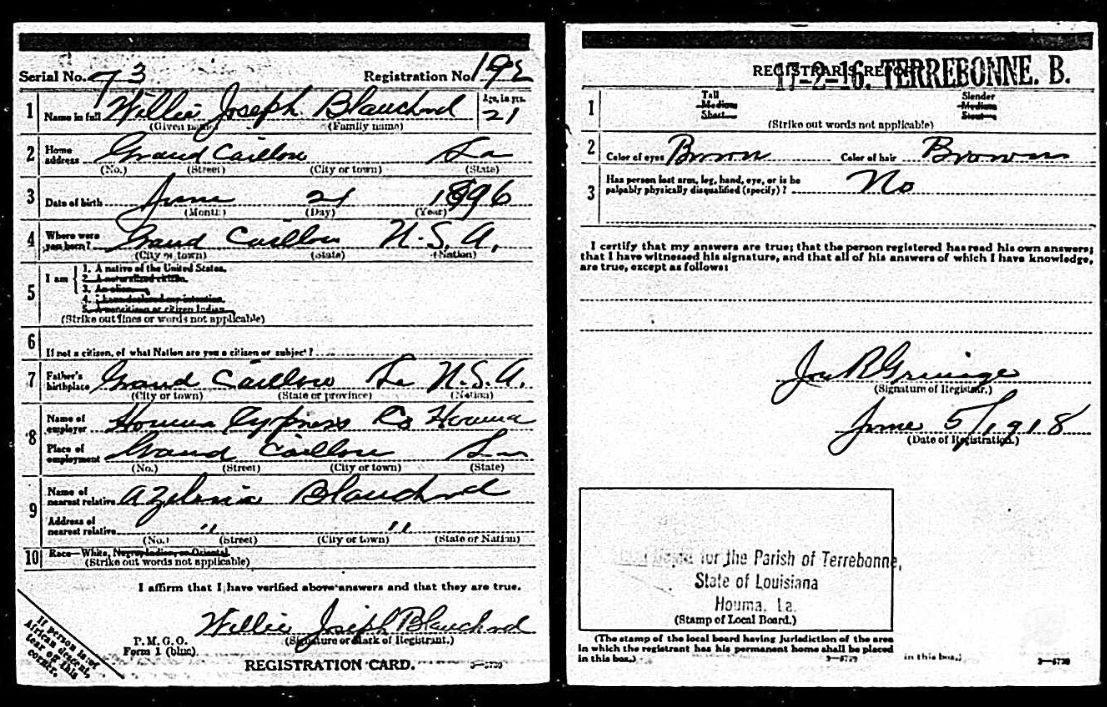 Serial No. 73 Registration No. 192
1 Name in full Willie Joseph Blanchard Age, in yrs. 21
(Given name) (Family name)
2 Home address Grand Caillou La
(No.) (Street) (City or town) (State)
3 Date of birth June 21 1896
(Month) (Day) (Year)
4 Where were you born? Grand Caillou U.S.A.
(City or town) (State) (Nation)
5 I am
1. A native of the United States.
2. A naturalized citizen.
3. An alien.
4. I have declared my intention.
5. A noncitizen or citizen Indian.
(Strike out lines or words not applicable)
6 If not a citizen, of what Nation are you a citizen or subject?
7 Father's birthplace Grand Caillou La U.S.A.
(City or town) (State or province) (Nation)
8 Name of employer Houma Cypress Co Houma
Place of employment Grand Caillou La
(No.) (Street) (City or town) (State)
9 Name of nearest relative Azelonia Blanchard
Address of nearest relative " "
(No.) (Street) (City or town) (State or Nation)
10 Race—White, Negro, Indian, or Oriental
(Strike out words not applicable)
I affirm that I have verified above answers and that they are true.
Willie Joseph Blanchard
(Signature or Mark of Registrant.)
P. M. G. O.
Form 1 (blue)
REGISTRATION CARD. 3—5729
If person is of
African descent,
tear off this
corner.
REGISTRAR'S REPORT
17-2-16. TERREBONNE. B.
1 Tall Slender
Medium Medium
Short Stout
(Strike out words not applicable)
2 Color of eyes Brown Color of hair Brown
3 Has person lost arm, leg, hand, eye, or is he
palpably physically disqualified (specify)? No
I certify that my answers are true; that the person registered has read his own answers;
that I have witnessed his signature, and that all of his answers of which I have knowledge,
are true, except as follows:
(Signature of Registrar.)
June 5/1918
(Date of Registration.)
for the Parish of Terrebonne,
State of Louisiana
Houma, La.
(Stamp of Local Board.)
(The stamp of the local board having jurisdiction of the area
in which the registrant has his permanent home shall be placed
in this box.) 3—5729 in this box.) 3—5729